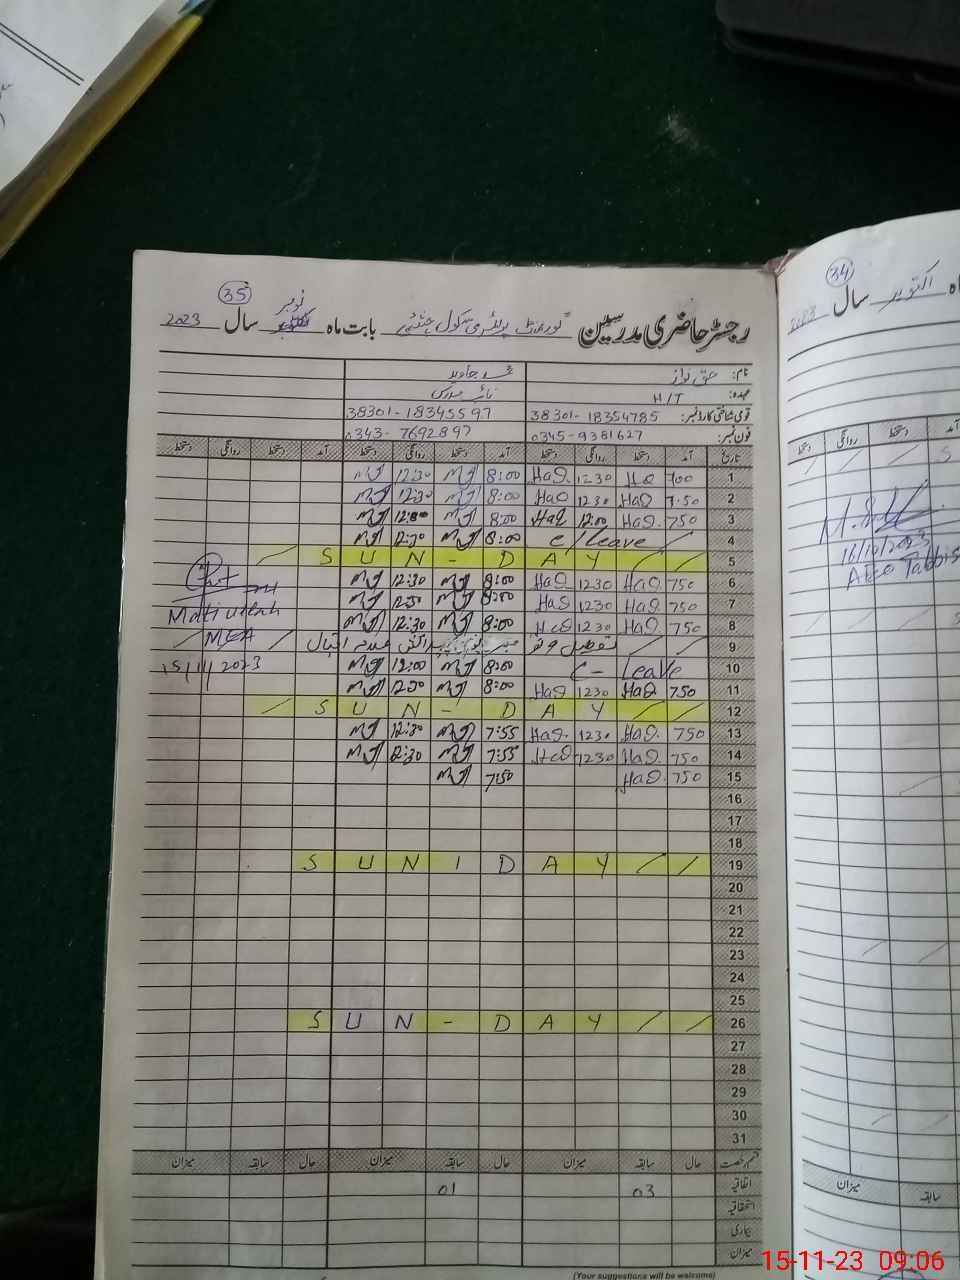 35
رجسٹر حاضری مدرسین گورنمنٹ پرائمری سکول بابت ماہ نومبر سال 2023
نام: حق نواز محمد جاوید
عہدہ: H/T
قومی شناختی کارڈ نمبر: 38301-18354785 38301-18345597
فون نمبر: 0345-9381627 0343-7692897
تاریخ آمد دستخط روانگی دستخط آمد دستخط روانگی دستخط آمد دستخط روانگی دستخط
1 700 HaQ 1230 HaQ 8:00 MJ 12:30 MJ
2 7.50 HaQ 1230 HaQ 8:00 MJ 12:30 MJ
3 750 HaQ 12:00 HaQ 8:00 MJ MJ
4 c/leave 8:00 MJ MJ
5 SUN-DAY
6 750 HaQ 1230 HaQ 8:00 MJ 12:30 MJ
7 750 HaQ 1230 HaQ 8:00 MJ MJ
8 750 HaQ 1230 HaQ 8:00 MJ 12:30 MJ
9 علامہ اقبال
10 C-Leave 8:00 MJ 12:00 MJ
11 750 HaQ 1230 HaQ 8:00 MJ MJ
12 SUN-DAY
13 750 HaQ. 1230 HaQ. 7:55 MJ 12:30 MJ
14 750 HaQ. 1230 HaQ 7:55 MJ MJ
15 750 HaQ. 7:50 MJ
16
17
18
19 SUNIDAY
20
21
22
23
24
25
26 SUN-DAY
27
28
29
30
31
Matiullah
MEA
15/11/2023
قسم رخصت حال سابقہ میزان حال سابقہ میزان حال سابقہ میزان
اتفاقیہ 03 01
استحقاقیہ
بیماری
میزان
(Your suggestions will be welcome)
34
اکتوبر سال 2023
آمد دستخط روانگی دستخط
16/10/2023
سابقہ میزان
15-11-23 09:06